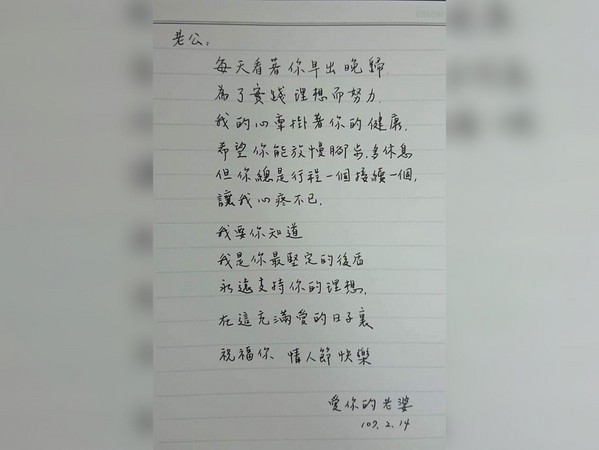 老公：
每天看著你早出晚歸
為了實踐理想而努力
我的心牽掛著你的健康，
希望你能放慢腳步，多休息
但你總是行程一個接續一個，
讓我心疼不已。
我要你知道
我是你最堅定的後盾
永遠支持你的理想，
在這充滿愛的日子裏
祝福你 情人節快樂
愛你的老婆
107.2.14